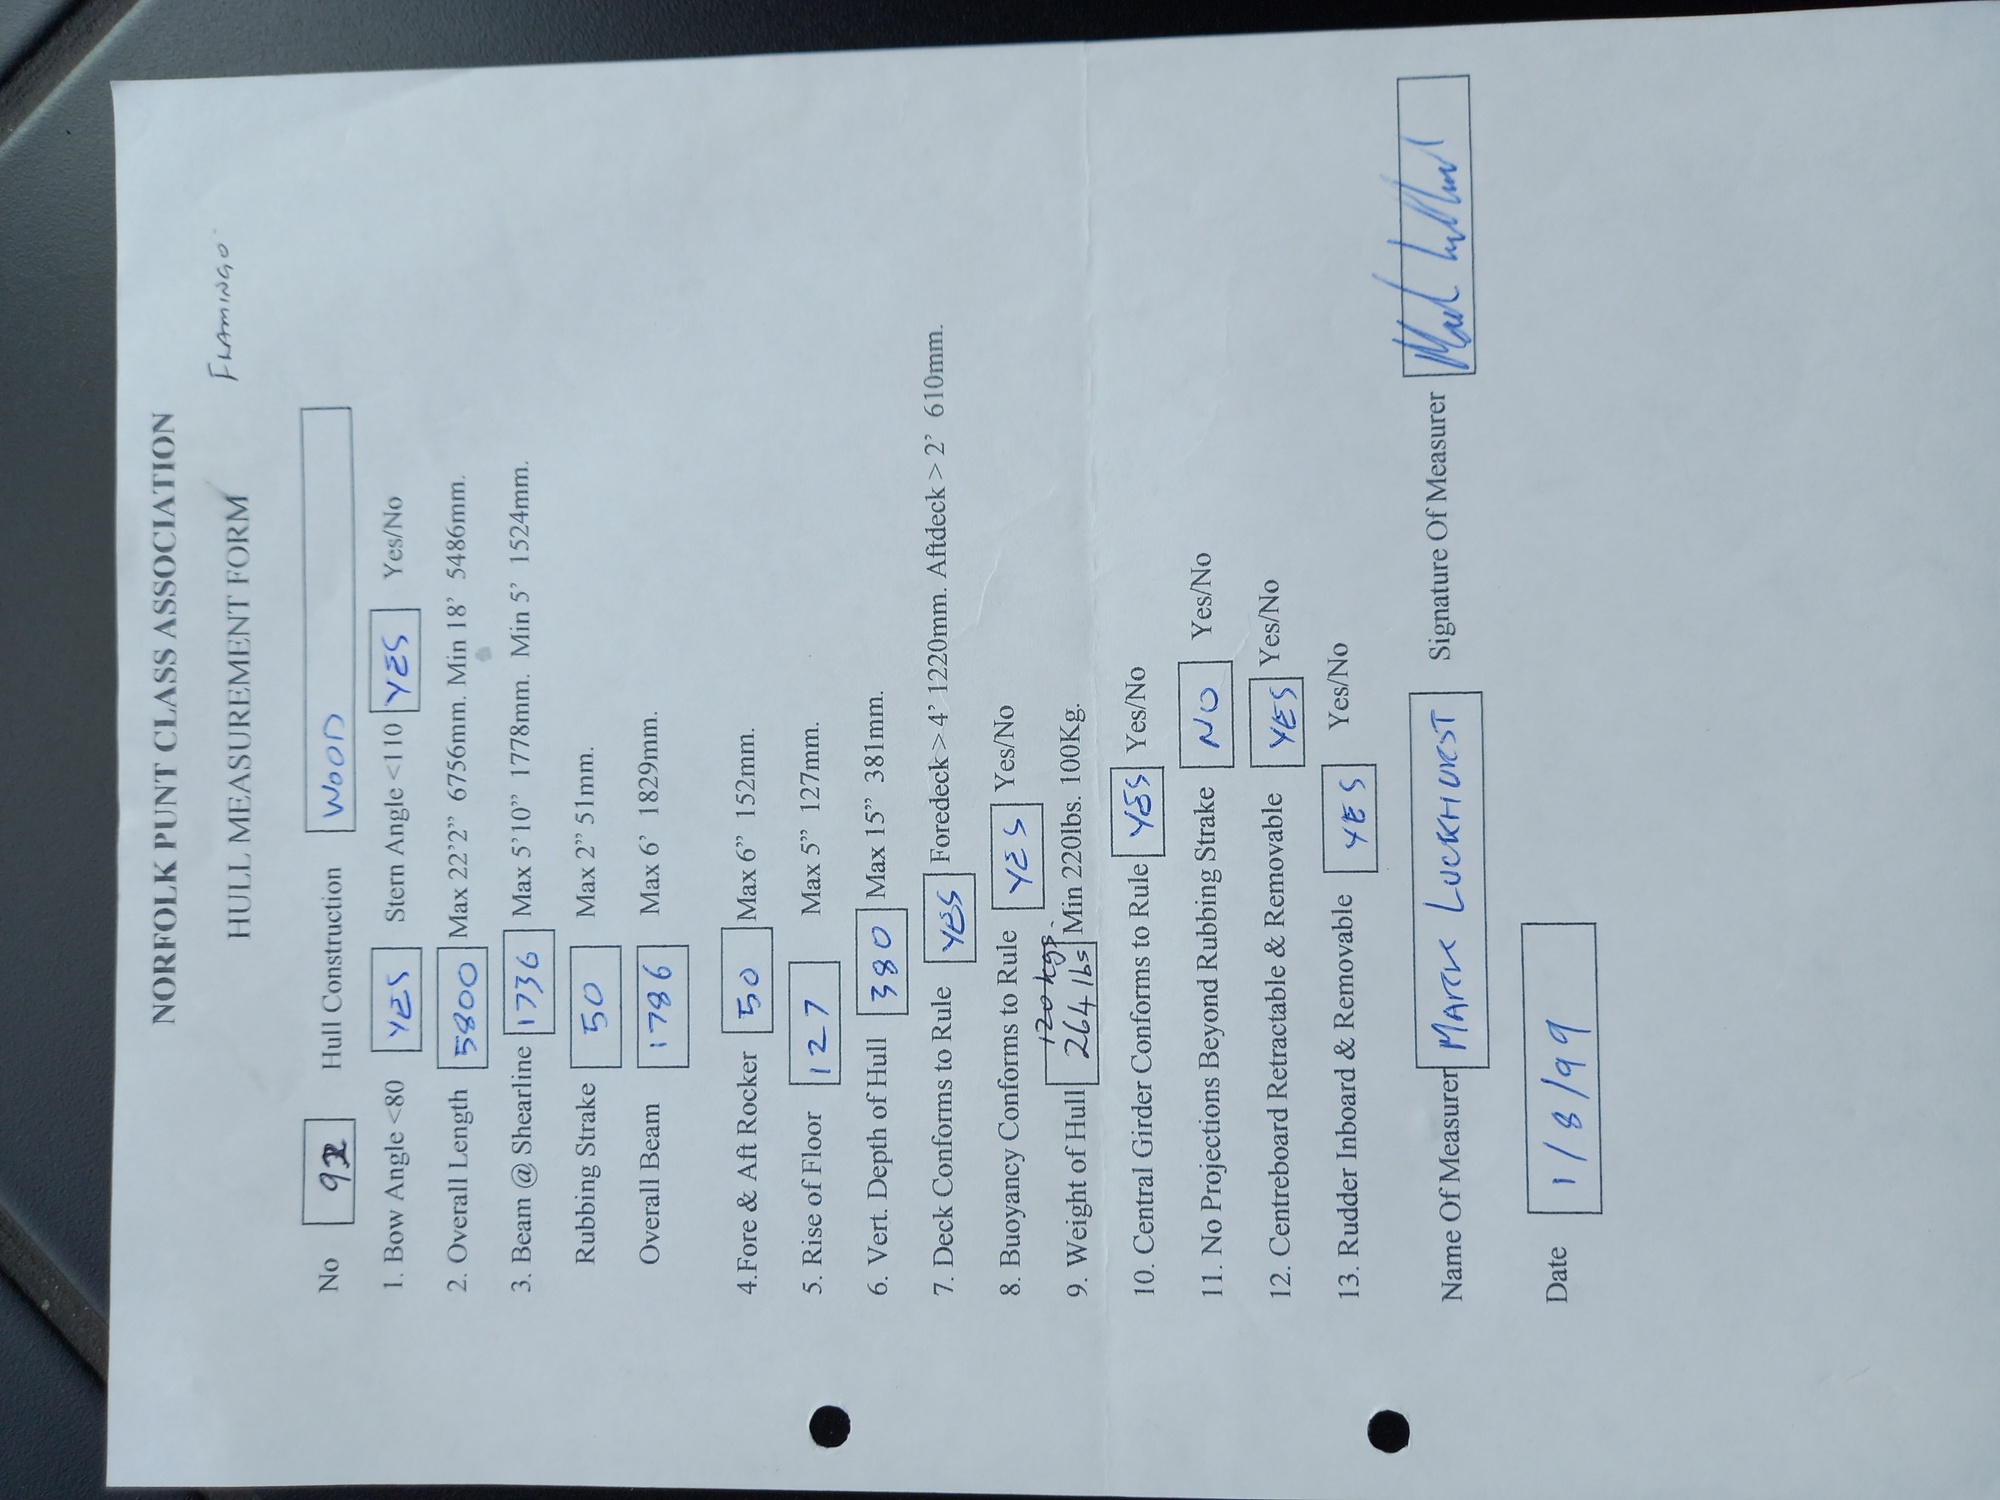 NORFOLK PUNT CLASS ASSOCIATION
HULL MEASUREMENT FORM FLAMINGO
No 92 Hull Construction WOOD
1. Bow Angle <80 YES Stern Angle <110 YES Yes/No
2. Overall Length 5800 Max 22'2” 6756mm. Min 18' 5486mm.
3. Beam @ Shearline 1736 Max 5'10” 1778mm. Min 5' 1524mm.
Rubbing Strake 50 Max 2” 51mm.
Overall Beam 1786 Max 6' 1829mm.
4.Fore & Aft Rocker 50 Max 6” 152mm.
5. Rise of Floor 127 Max 5” 127mm.
6. Vert. Depth of Hull 380 Max 15” 381mm.
7. Deck Conforms to Rule YES Foredeck > 4' 1220mm. Aftdeck > 2' 610mm.
8. Buoyancy Conforms to Rule YES Yes/No
120 kgs.
9. Weight of Hull 264 lbs Min 220lbs. 100Kg.
10. Central Girder Conforms to Rule YES Yes/No
11. No Projections Beyond Rubbing Strake NO Yes/No
12. Centreboard Retractable & Removable YES Yes/No
13. Rudder Inboard & Removable YES Yes/No
Name Of Measurer MARK LUCKHURST Signature Of Measurer Mark Luckhurst
Date 1/8/99